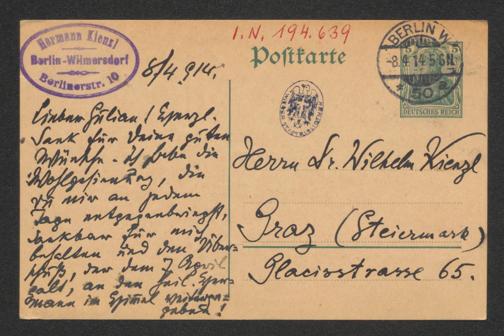 Hermann Kienzl
Berlin-Wilmersdorf
Berlinerstr. 10
I.N. 194.639
Postkarte
BERLIN W
-8.4.14.5-6N.
* 50 a
5
5
DEUTSCHES REICH
8/4 914.
Dank für deine guten
Wünsche. Ich habe die
Wohlgesinnung, die
du mir an jedem
Tage entgegenbringst,
dankbar für mich
behalten und den Über-
schuß, der dem 7 April
galt, an den
mann im Himmel weiterge-
gebend!
Herrn Dr. Wilhelm Kienzl
Graz (Steiermark)
Glacisstrasse 65.